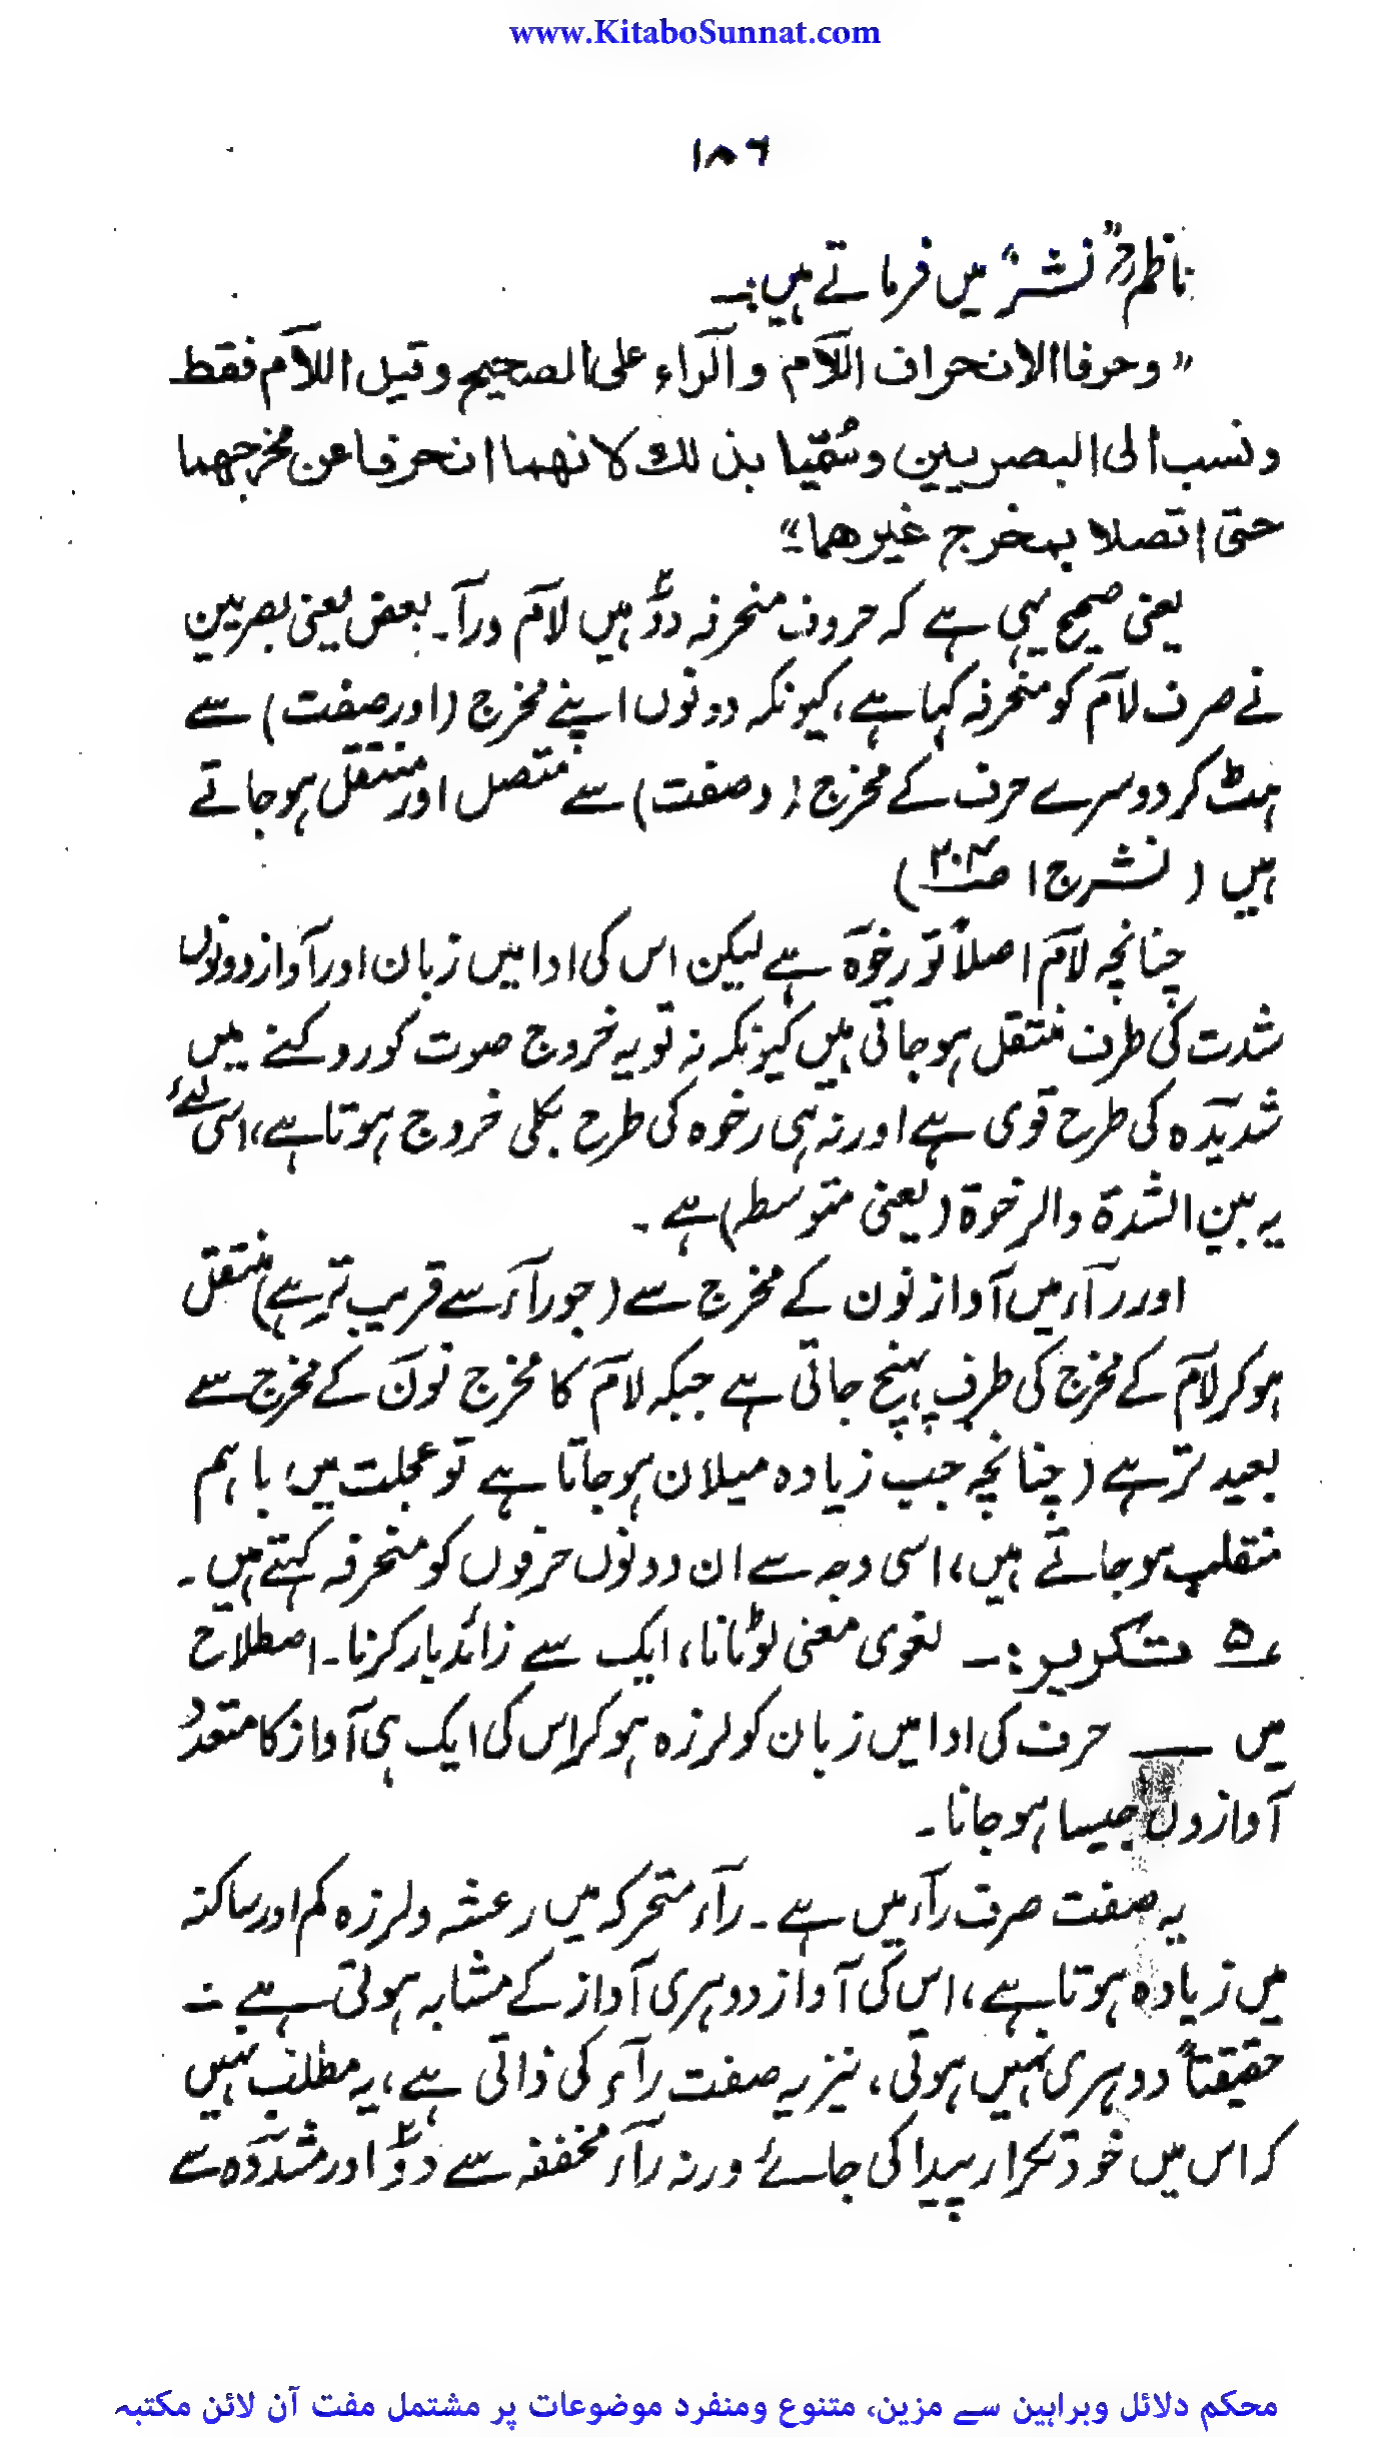 www.KitaboSunnat.com
۱۸۶
ناظمؒ ”نشر“ میں فرماتے ہیں:۔
”وحرفا الانحراف اللّام والرّاء على الصحيح وقيل اللام فقط
ونسب الى البصريين وسُمّيا بذلك لانهما انحرفا عن مخرجهما
حتى اتصلا بمخرج غيرهما“۔
یعنی صحیح یہی ہے کہ حروف منحرفہ دوؔ ہیں لآم ورآ۔ بعض یعنی بصریین
نے صرف لآم کو منحرفہ کہا ہے، کیونکہ دونوں اپنے مخرج (اور صفت) سے
ہٹ کر دوسرے حرف کے مخرج (وصفت) سے متصل اور منتقل ہو جاتے
ہیں (نشر ج۱ ص۲۰۴)
چنانچہ لآم اصلاً تو رخوۃ ہے لیکن اس کی ادا میں زبان اور آواز دونوں
شدت کی طرف منتقل ہو جاتی ہیں کیونکہ نہ تو یہ خروج صوت کو روکنے میں
شدیدہ کی طرح قوی ہے اور نہ ہی رخوہ کی طرح بکلی خروج ہوتا ہے، اسی لئے
یہ بین الشدۃ والرخوۃ (یعنی متوسط) ہے۔
اور رآء میں آواز نون کے مخرج سے (جو رآء سے قریب تر ہے) منتقل
ہو کر لآم کے مخرج کی طرف پہنچ جاتی ہے جبکہ لآم کا مخرج نون کے مخرج سے
بعید تر ہے (چنانچہ جب زیادہ میلان ہو جاتا ہے تو عجلت میں باہم
منقلب ہو جاتے ہیں، اسی وجہ سے ان دونوں حرفوں کو منحرفہ کہتے ہیں۔
؏۵ تکریر:۔ لغوی معنی لوٹانا، ایک سے زائد بار کرنا۔ اصطلاح
میں ــــ حرف کی ادا میں زبان کو لرزہ ہو کر اس کی ایک ہی آواز کا متعدد
آوازوں جیسا ہو جانا۔
یہ صفت صرف رآء میں ہے۔ رآء متحرکہ میں رعشہ ولرزہ کم اور ساکنہ
میں زیادہ ہوتا ہے، اس کی آواز دوہری آواز کے مشابہ ہوتی ہے۔
حقیقتاً دوہری نہیں ہوتی، نیز یہ صفت رآء کی ذاتی ہے، یہ مطلب نہیں
کہ اس میں خود تکرار پیدا کی جائے ورنہ رآء مخففہ سے دوؔ اور مشددہ سے
محکم دلائل وبراہین سے مزین، متنوع ومنفرد موضوعات پر مشتمل مفت آن لائن مکتبہ